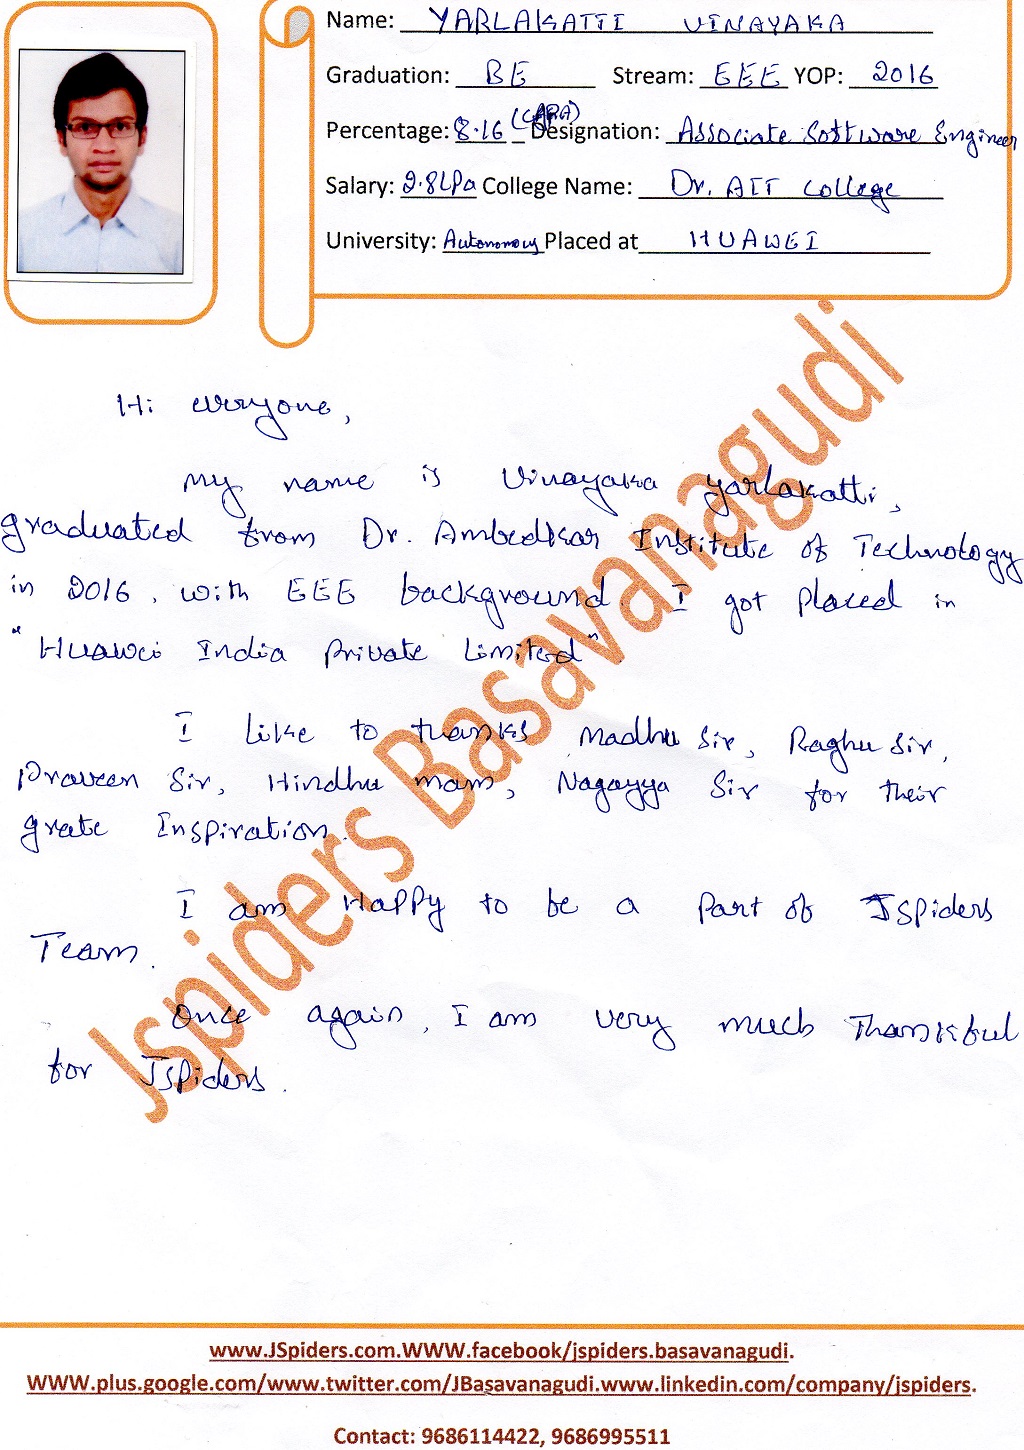 Name: YARLAKATTI VINAYAKA
Graduation: BE Stream: EEE YOP: 2016
Percentage: 8.16 Designation: Associate Software Engineer
Salary: 2.8LPa College Name: Dr. AIT College
University: Autonomous Placed at HUAWEI
Hi everyone,
My name is Vinayaka Yarlakatti,
graduated from Dr. Ambedkar Institute of Technology
in 2016, with EEE background. I got placed in
"Huawei India Private Limited".
I like to thanks Madhu Sir, Raghu Sir,
Praveen Sir, Hindhu mam, Nagayya Sir for their
grate Inspiration.
I am Happy to be a part of Jspiders
Team.
Once again, I am very much Thankful
for Jspiders.
Jspiders Basavanagudi
www.JSpiders.com.WWW.facebook/jspiders.basavanagudi.
WWW.plus.google.com/www.twitter.com/JBasavanagudi.www.linkedin.com/company/jspiders.
Contact: 9686114422, 9686995511